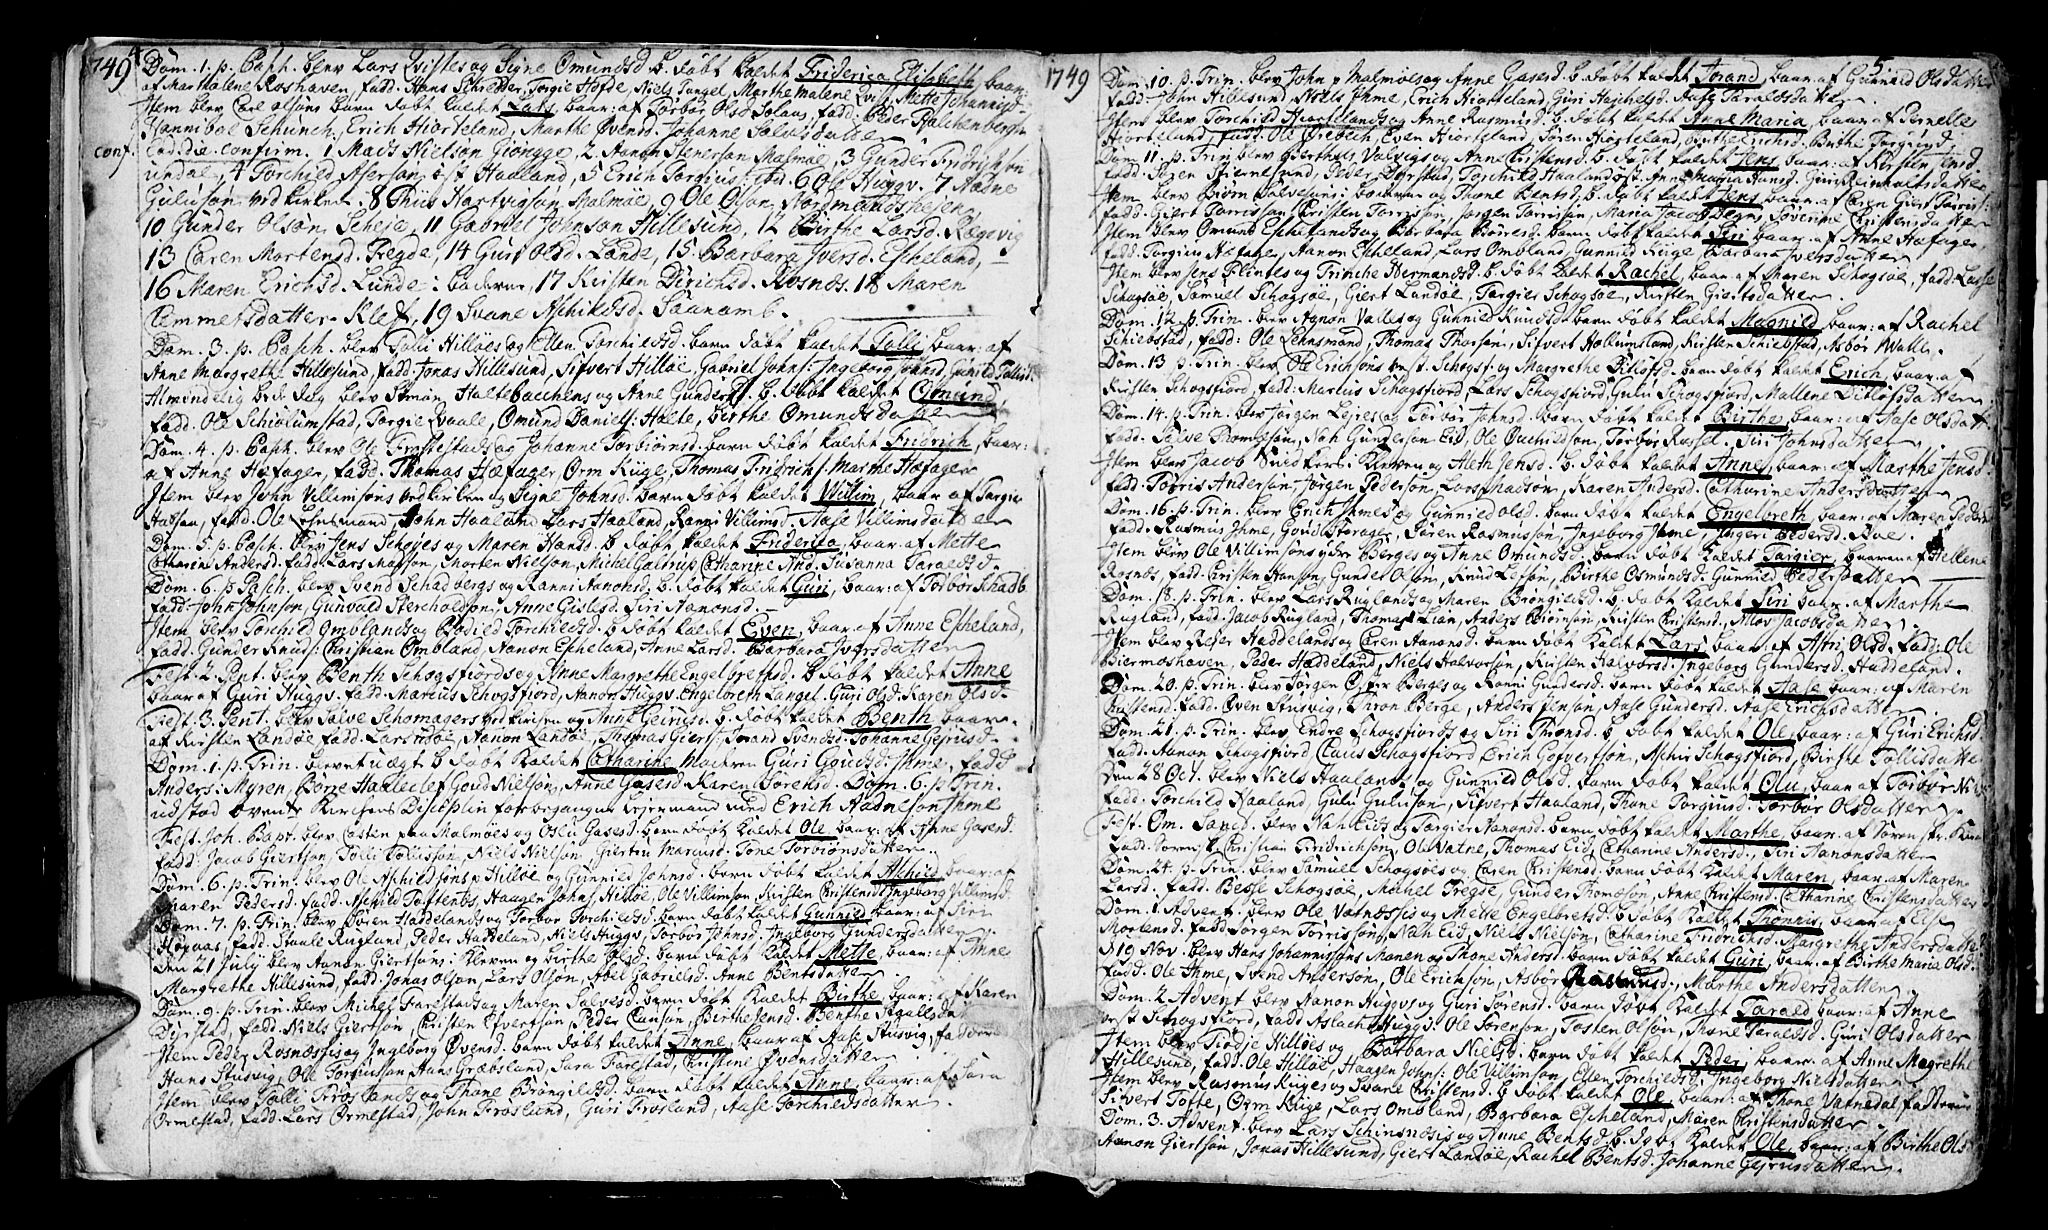 1749
Dom. 1. p. Pasch. blev Lars Qvistes og Signe Omundsd. b. døbt kaldet Friderica Elisabeth, baar:
af Mar: Malene Roshaven, fadd. Hans Schrøder, Torgie Hofde, Niels Tangel, Marthe Malene Qvist, Mette Johannisd.
Item blev Carl Olsons barn døbt kaldet Lars, baar: af Torbor Olsd. fadd: Peder Falchenbergsen
Hannibal Schunch, Erich Hiorteland, Marthe Øvensd. Johanne Salvesdatter
conf. Eod. die confirm. 1 Mads Nielson Giongge, 2 Aanon Stenerson Malmøe, 3 Gunder Fridrichson
undal, 4 Torchild Aserson Haaland, 5 Erich Torgius: 6 Ole Huggv. 7 Aadne
Guluson ved kirken. 8 Thiis Hartvigson Malmøe, 9 Ole Olson Normandshejen
10 Gunder Olson Scheje, 11 Gabriel Johnson Hillesund, 12 Birthe Larsd. Ragevig
13 Caren Mortensd. Tregde, 14 Guri Olsd. Lande, 15 Barbara Iversd. Escheland,
16 Maren Erichsd. Lunde i 17 Kirsten Dirichsd. Rosnæs. 18 Maren
Emmertsdatter Klef, 19 Svane Aschildsd. Saanamb.
Dom. 3. p. Pasch. blev Tolli Hilløes og Ellen Torchildsd. barn døbt kaldet Tolli, baar: af
Anne Margrethe Hillesund, fadd. Jonas Hillesund, Sifvert Hilløe, Gabriel Johns: Ingeborg Johnsd. Gunild Tollisd.
Almindelig bede dag blev Simon Haltebacchens og Anne Gundersd. b. døbt kaldet Omund
fadd. Ole Schiølumstad, Torgie Qvaale, Omund Daniels: Halte, Birthe Omundsdatter
Dom. 4. p. Pasch. blev Ole Frøstestads og Johanne Torbiornsd. barn døbt kaldet Fridrich, baar:
af Anne Hæfager, fadd. Thomas Hæfager Orm Kiige, Thomas Fridrich: Marthe Hæfager
Item blev John Villumsons ved kirken og Signe Johnsd. barn døbt kaldet Willum, baar: af Torgier
fadd. Ole Lehnsmand, John Haaland Lars Haaland, Ranni Villimsd. Aase Villimsdatter
Dom. 5. p. Pasch. blev Jens Schøjes og Maren Hansd. b. døbt kaldet Friderica, baar: af Mette
Catharina Andersd. fadd. Lars Morten Nielson, Michel Galtrup, Catharine And. Susanna Taraldsd.
Dom. 6. p. Pasch. blev Svend Schadbergs og Ranni Aanonsd. b. døbt kaldet Guri, baar: af Torbor Schadb.
fadd. John Johnson, Gunvald Stercholdson, Anne Gislesd. Siri Aanonsd.
Item blev Torchild Omblands og Bodild Torchildsd. b. døbt kaldet Even, baar: af Anne Escheland,
fadd. Gunder Knuds: Christian Ombland, Aanon Escheland, Anne Larsd. Barbara Iversdatter
Fest. 2. Pent. blev Benth Schogsfiords og Anne Margrethe Engelbrethsd. b. døbt kaldet Anne
baar: af Guri Huggv. fadd. Marcus Schogsfiord, Aanon Huggv. Engelbreth Langel. Guri Olsd. Karen Olsd.
Fest. 3. Pent. blev Salve Schomagers ved kirken og Anne Geirusd. b. døbt kaldet Benth baar:
af Kirsten Landøe fadd. Lars Aanon Landøe, Thomas Giert: Torand Svendsd. Johanne Gejrusd.
Dom. 1. p. Trin. blev et uægt b. døbt kaldet Catharine Moderen Guri Goudsd. Ihme, fadd
Anders Myren, Børre Goud Nielson, Anne Gasesd. Karen Sørensd. Dom. 6. p. Trin.
udstod Kirchens Disciplin Erich Aadneson Ihme
Fest. Joh. Bapt. blev Casten paa Malmøes og Oslu Gasesd. barn døbt kaldet Ole baar: af Anne Gasesd.
fadd. Jacob Giertson, Tolli Tollisson, Niels Nielson, Giertru Marcusd. Tone Torbiornsdatter.
Dom. 6. p. Trin. blev Ole Aschildsons p. Hilløe og Gunnild Johnsd. barn døbt kaldet Aschild, baar: af
Maren Pedersd. fadd. Aschild Toftenes, Haagen Johns: Hilløe, Ole Villimson, Kirsten Christensd. Ingeborg Villumsd.
Dom. 7. p. Trin. blev Søren Haddelands og Torbor Torchildsd. barn døbt kaldet Gunnild, baar: af Siri
fadd. Staale Rugland, Peder Haddeland, Niels Huggv. Torbor Johnsd. Ingeborg Gundersdatter.
den 21 July blev Aanon Giertsons i Kleven og Birthe Olsd. barn døbt kaldet Mette, baar: af Anne
Margrethe Hillesund, fadd. Jonas Olson, Lars Olson, Abel Gabrielsd. Anne Bentsdatter
Dom. 9. p. Trin. blev Michel Farestads og Maren Salvesd. barn døbt kaldet Birthe, baar: af Karen
Dyrstad, fadd. Niels Giertson, Christen Evertson, Peder Clauson, Birthe Jensd. Benthe
Item Peder Rosnæssis og Ingeborg Øvensd. barn døbt kaldet Anne, baar: af Aase Stusvig, fadderne
Hans Stusvig, Ole Torgiuson Hans Græbsland, Sara Farestad, Christine Øvensdatter
Item blev Tolli Frøslands og Thone Brøngildsd. barn døbt kaldet Anne, baar: af Sara
Ormestad, fadd. Lars Ormestad, John Frøsland, Guri Frøsland, Aase Torchildsdatter
1749 5.
Dom. 10. p. Trin. blev John p. Malmøes og Anne Gasesd. b. døbt kaldet Torand, baar: af Gunnild Olsdatter
fadd. John Hillesund, Niels Ihme, Erich Hiorteland, Guri Hachelsd. Aase Taraldsdatter
Item blev Torchild Hiortelands og Anne Rasmusd. b. døbt kaldet Anne Maria, baar: af Pernelle
Hiorteland, fadd. Ole Even Hiorteland, Søren Hiorteland, Erichsd. Birthe Torgiusd.
Dom. 11. p. Trin. blev Gierthuls Valvigs og Anne Christensd. b. døbt kaldet Jens, baar: af Kirsten Jensd.
fadd. Søren Fiernesund, Peder Dyrstad, Torchild Haaland øst. Anne Maria Hansd. Guri Reinholtsdatter
Item blev Biorn Salvesons i og Thone Bentsd. b. døbt kaldet Jens, baar: af Caren Giert Torris:
fadd. Giert Torrisson, Christen Torrisson, Jørgen Torrisson, Maria Jacob Degns, Severine Christensdatter
Item blev Omund Eschelands og Barbara Børresd. barn døbt kaldet Siri baar: af Anne Hæfager
fadd. Torgius Hæfager, Aanon Escheland, Lars Ombland, Gunnild Kiige, Barbara Iversdatter
Item blev Jens Flintes og Trinche Hermansd. b. døbt kaldet Rachel, baar: af Maren Schogsøe, fadd: Lasse
Schogsøe, Samuel Schogsøe, Giert Landøe, Torgies Schogsøe, Kirsten Giertsdatter
Dom. 12. p. Trin. blev Aanon Valles og Gunnild Knudsd. barn døbt kaldet Magnild, baar: af Rachel
Schiebstad, fadd: Ole Lehnsmand, Thomas Thorson, Sifvert Hollumsland, Kirsten Schiebstad, Asbør Watle
Dom. 13 p. Trin. blev Ole Erichsons vest. Schogsf. og Margrethe Ditlofsd. barn døbt kaldet Erich, baar: af
Kirsten Schogsfiord, fadd: Marcus Schogsfiord, Lars Schogsfiord, Gulu Schogsfiord, Mallene Ditlofsdatter
Dom. 14. p. Trin. blev Jørgen Lejres og Torbor Johnsd. barn døbt kaldet Birthe, baar: af Aase Olsdatt
fadd: Salve Thomeson, Nah Gunderson Eid, Ole Ouchildson, Torbor Russel. Siri Johnsdatter
Item blev Jacob Snidkers i Kleven og Aleth Jensd. b. døbt kaldet Anne, baar: af Marthe Jensd.
fadd: Torris Anderson, Jørgen Pederson, Lars Madson, Karen Andersd. Catharine Andersdatter
Dom. 16 p. Trin. blev Erich Ihmes og Gunnild Olsd. barn døbt kaldet Engelbreth, baar: af Maren Peders
fadd: Rasmus Ihme, Goud Storager, Søren Rasmusson, Ingeborg Ihme, Inger Pedersd. Kaas.
Item blev Ole Villumsons ydre Berges og Anne Omundsd. barn døbt kaldet Targier, baaren af Hellene
Rosnæs, fadd: Christen Hanson, Gunder Olson, Knud Lefson, Birthe Osmundsd. Gunnild Pedersdatter
Dom. 18. p. Trin. blev Lars Ruglands og Maren Brøngildsd. b. døbt kaldet Siri baar: af Marthe
Rugland, fadd: Jacob Rugland, Thomas Lian, Anders Biornson, Kirsten Christensd. Allov Jacobsdatter
Item blev Reier Haddelands og Caren Aanonsd. barn døbt kaldet Lars, baar: af Astri Olsd. fadd: Ole
Biermoshaven, Peder Haddeland, Niels Halvorson, Kirsten Halvorsd. Ingeborg Gundersd. Haddeland.
Dom. 20. p. Trin. blev Jørgen Øvre Berges og Ranni Gundersd. barn døbt kaldet Aase, baar: af Maren
fadd: Øven Stusvig, Thron Berge, Anders Jenson, Aase Gundersd. Aase Erichsdatter
Dom. 21. p. Trin. blev Endre Schogsfiords og Siri Thronsd. b. døbt kaldet Ole, baar: af Guri Erichsd
fadd: Aanon Schogsfiord, Claus Schogsfiord, Erich Gosvertson, Aschier Schogsfiord, Birthe Tollisdatter
den 28 Oct. blev Niels Haalands og Gunnild Olsd. barn døbt kaldet Olu, baar: af Torbor Nils
fadd: Torchild Haaland, Gulu Guluson, Sifvert Haaland, Thone Torgiusd. Torbor Olsdatter
Fest. Om. Sanct. blev Nah Eids og Targier Aanonsd. barn døbt kaldet Marthe, baar: af Søren
fadd: Søren Christian Fridrichson, Ole Vatne, Thomas Eid, Catharine Andersd. Siri Aanonsdatter
Dom. 24. p. Trin. blev Samuel Schogsøes og Caren Christensd. barn døbt kaldet Maren, baar: af Maren
Larsd. fadd: Besse Schogsøe, Michel Tregde, Gunder Thomeson, Anne Christensd. Catharine Christensdatter
Dom. 1. Advent. blev Ole Vatnæssis og Mette Engelbretsd. b. døbt kaldet Thonnis, baar: af Else
Mortensd. fadd: Jørgen Torrisson, Nah Eid, Niels Nielson, Catharine Fridrichsd. Margrethe Andersdatter
D 19 Nov. blev Hans Johannissons Manen og Thone Andersd. barn døbt kaldet Guri, baar: af Birthe Maria Olsd.
fadd: Ole Ihme, Svend Anderson, Ole Erichson, Asbor Rasmusd., Marthe Andersdatter
Dom. 2 Advent blev Aanon Huggvs og Guri Sørensd. barn døbt kaldet Tarald baar: af Anne
vest Schogsfiord, fadd: Aslach Huggv. Ole Sørenson, Tosten Olson, Thore Taraldsd. Guri Olsdatter
Item blev Tiødje Hilløes og Barbara Nielsd. barn døbt kaldet Peder, baar: af Anne Magrethe
Hillesund, fadd: Ole Hilløe, Haagen Johns: Ole Villimson, Ellen Torchildsd. Ingeborg Nielsdatter
Item blev Rasmus Kiiges og Svane Christensd. b. døbt kaldet Ole, baar: af Thone Vatnedal, fadderne
Sifvert Tofte, Orm Kiige, Lars Ombland, Barbara Escheland, Maren Christensdatter
Dom. 3. Advent. blev Lars Schinsnæsis og Anne Bentsd. b. døbt kaldet Ole, baar: af Birthe Ols
Aanon Giertson, Jonas Hillesund, Giert Landøe, Rachel Bentsd. Johanne Gejrusdatter.